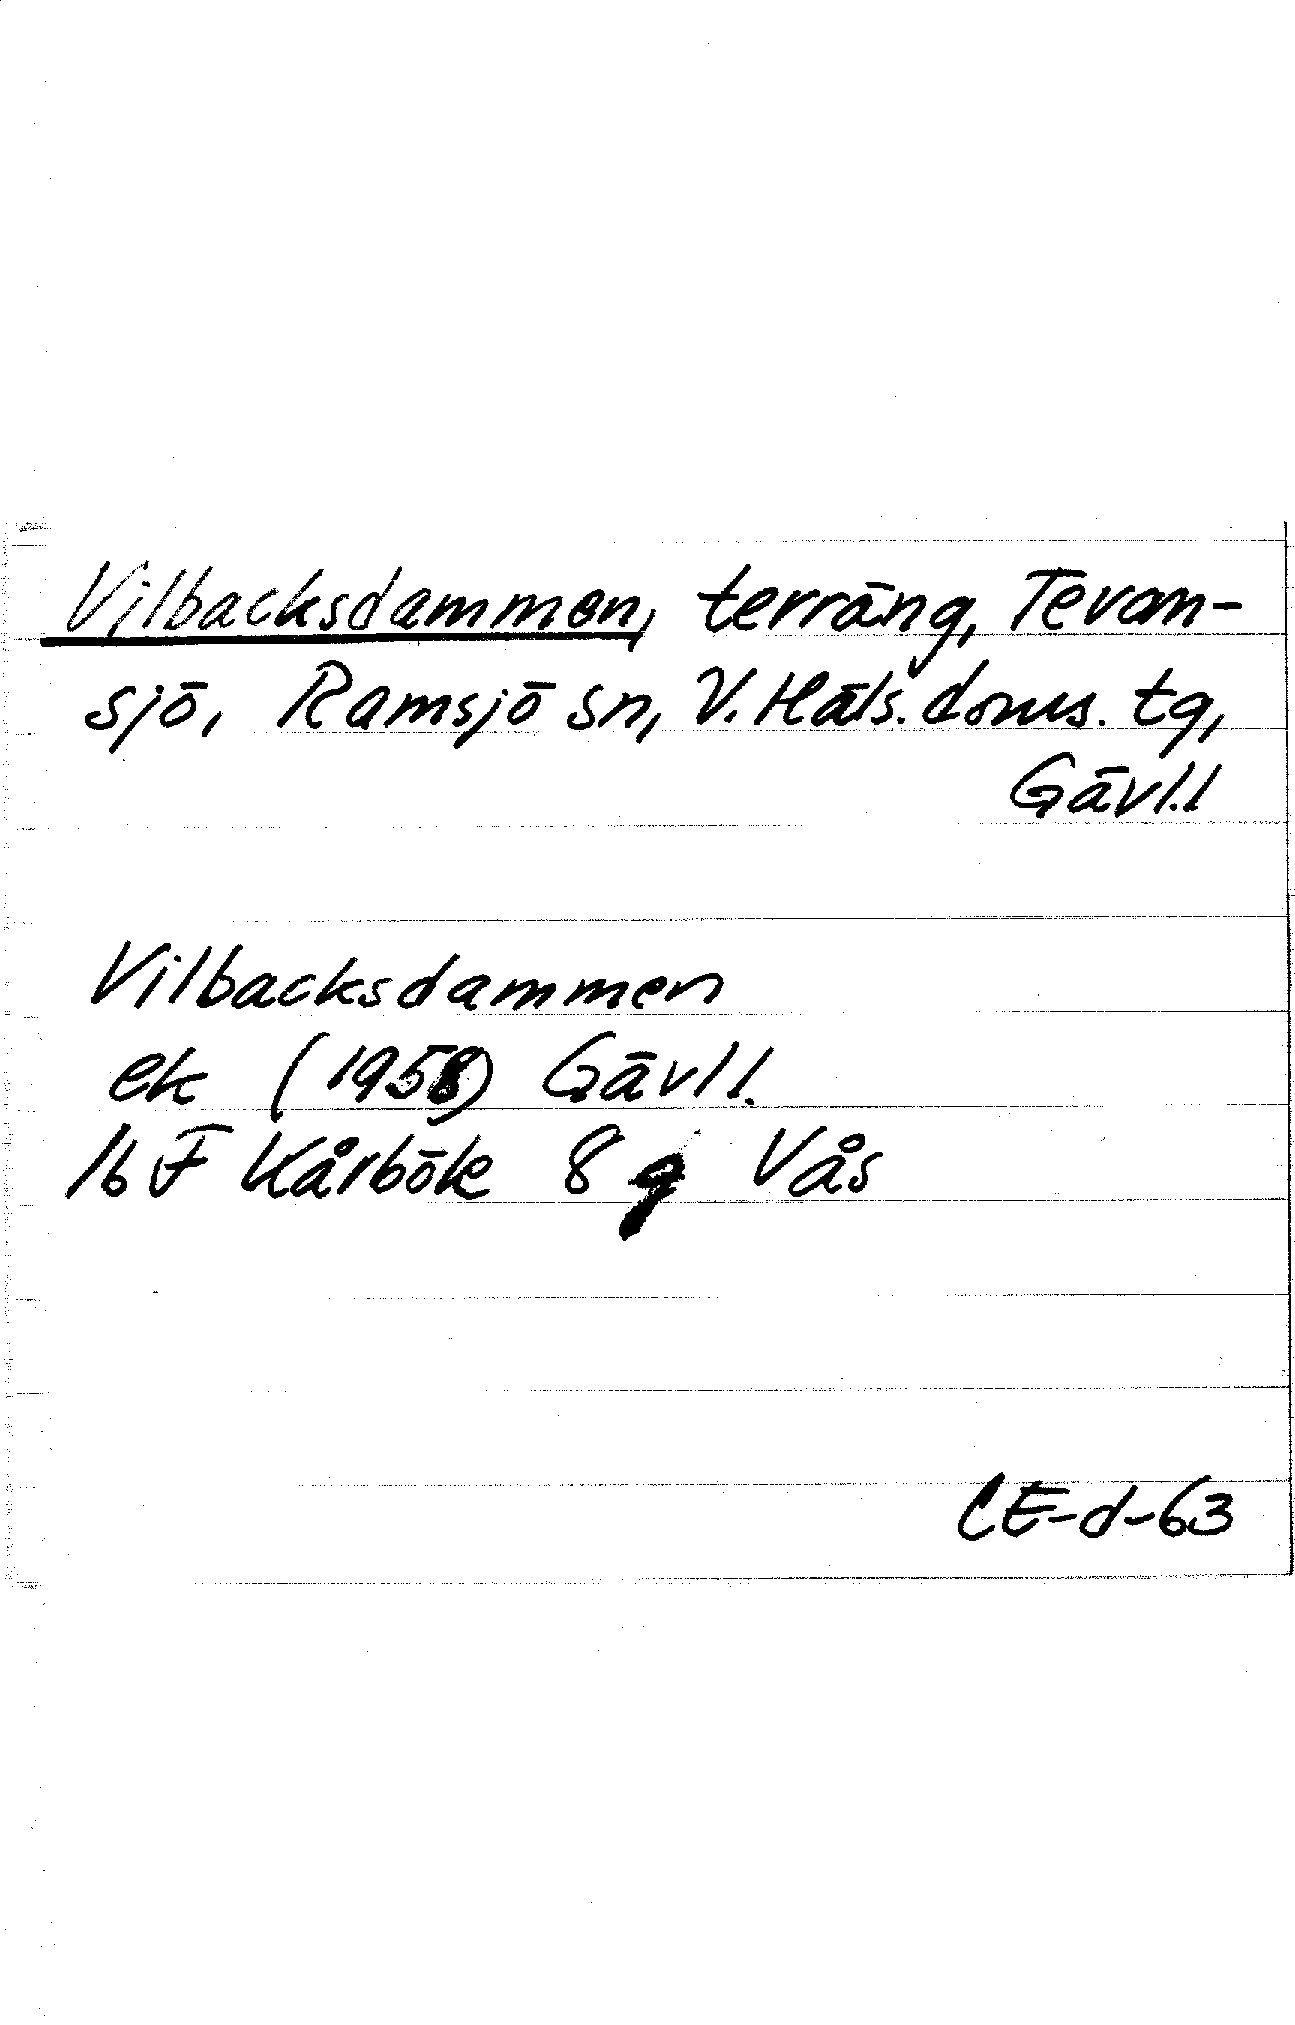 Vilbacksdammen, terräng, Tevan-
sjö, Ramsjö sn, V. Häls. doms. tg,
Gävl. l
Vilbacksdammen
ek (1958) Gävl l.
16 F Kårbök 8 g Vås
CE-d-63